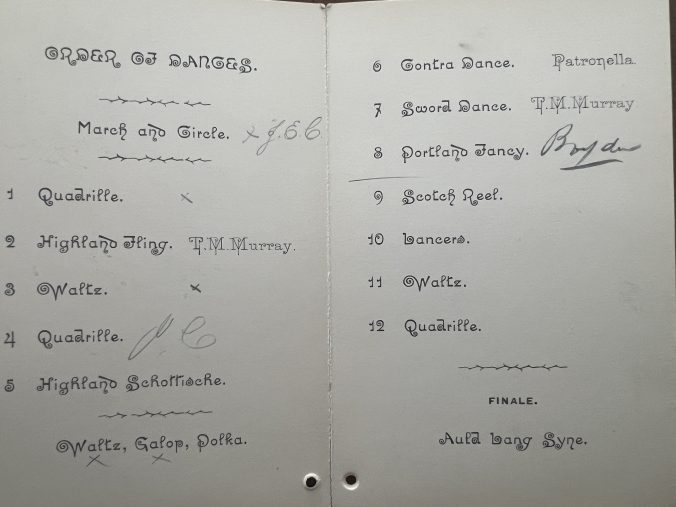 ORDER OF DANCES.
March and Circle. x J.E.C
1 Quadrille. x
2 Highland Fling. T.M.Murray.
3 Waltz. x
4 Quadrille. J.C
5 Highland Schottische.
Waltz, Galop, Polka.
x x
6 Contra Dance. Patronella.
7 Sword Dance. T.M.Murray.
8 Portland Fancy.
9 Scotch Reel.
10 Lancers.
11 Waltz.
12 Quadrille.
FINALE.
Auld Lang Syne.